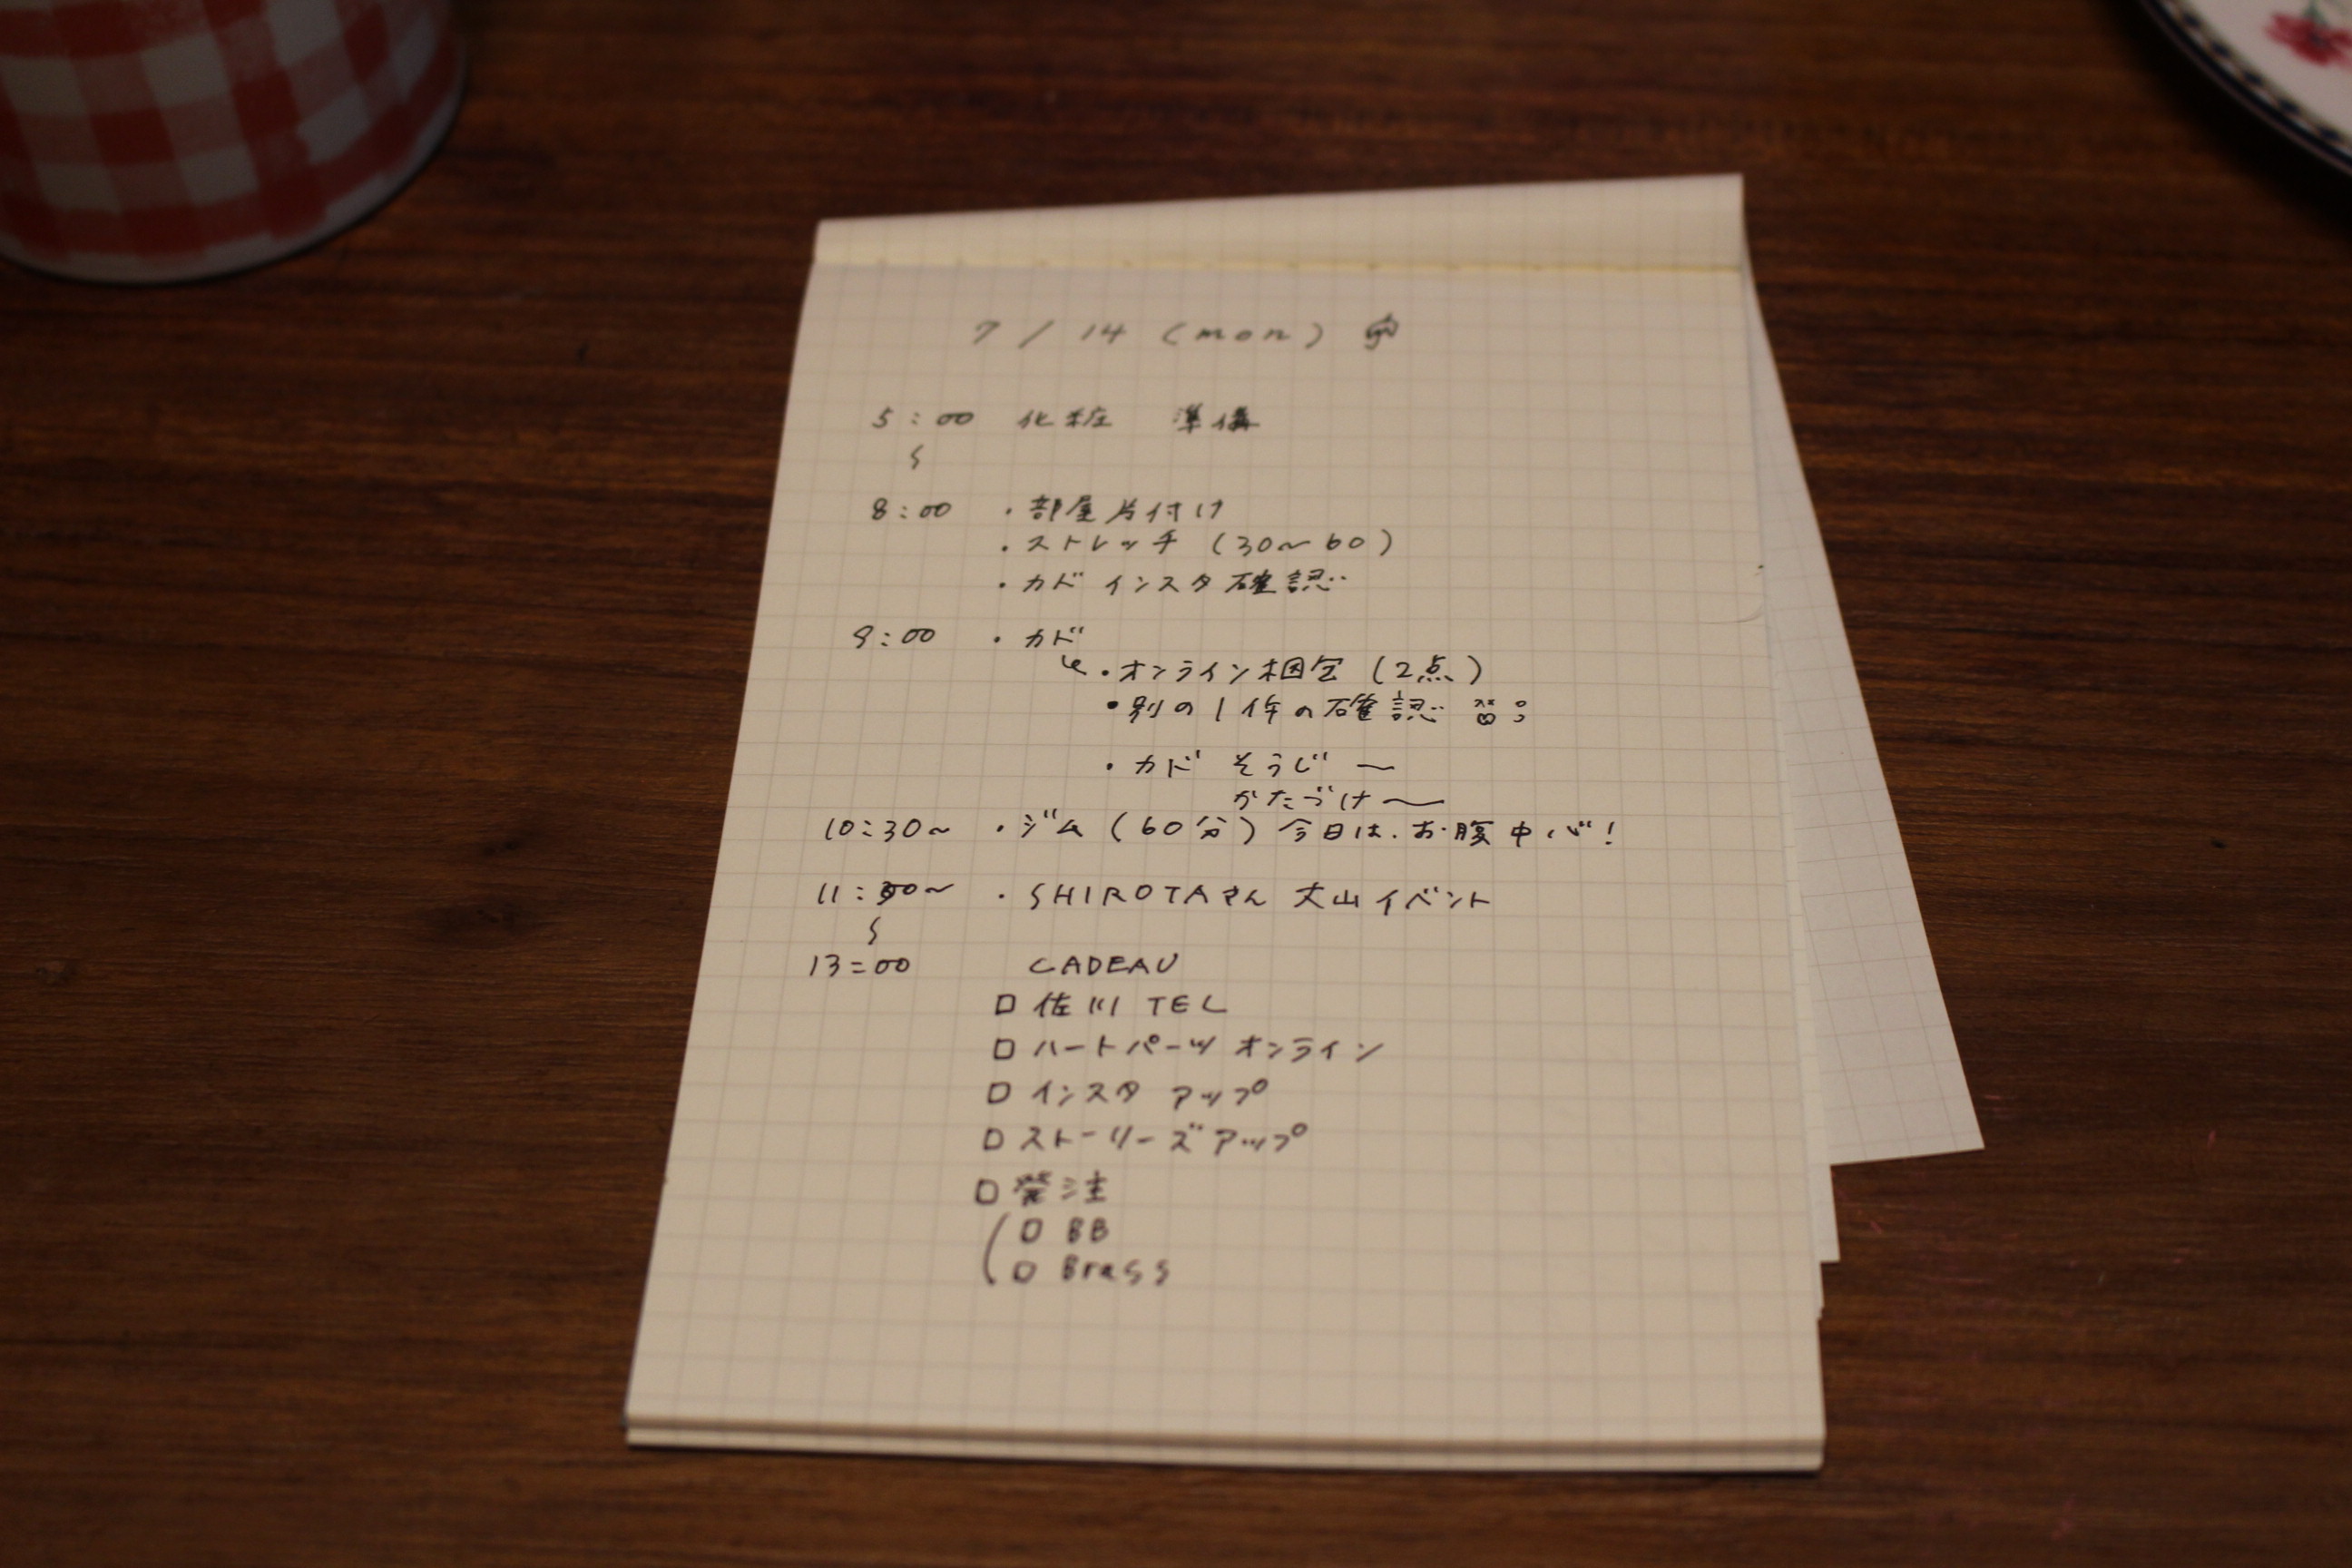 7/14(mon)
5:00 化粧 準備
8:00 ・部屋片付け
・ストレッチ(30〜60)
・カド インスタ確認
9:00 ・カド
・オンライン梱包(2点)
・別の1件の確認
・カド そうじ〜
かたづけ〜
10:30〜 ・ジム(60分)今日は、お腹中心!
11:30〜 ・SHIROTAさん 大山イベント
13:00 CADEAU
□ 佐川 TEL
□ ハートパーツ オンライン
□ インスタ アップ
□ ストーリーズアップ
□ 発注
□ BB
□ Brass